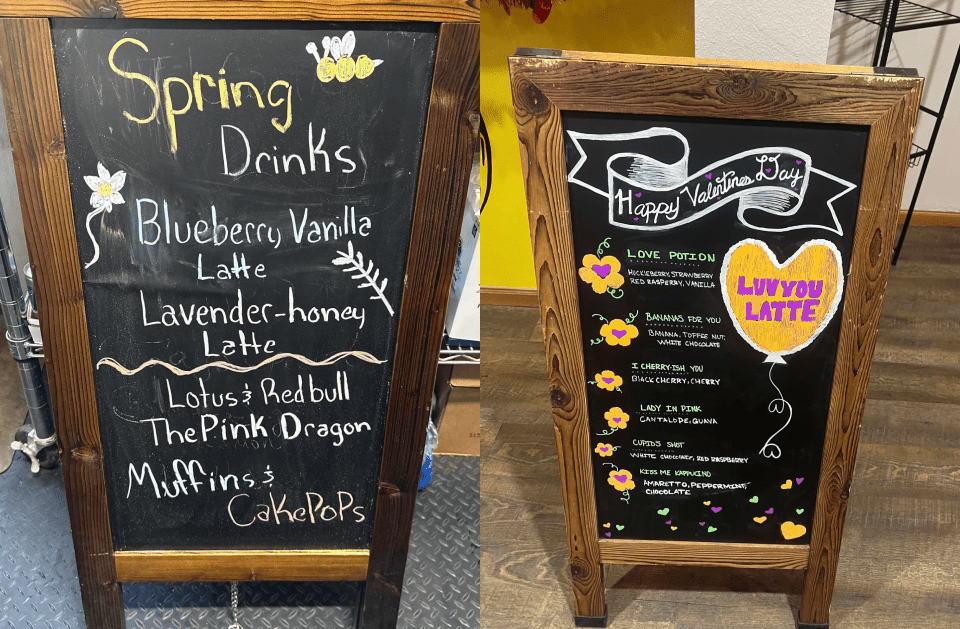 Spring
Drinks
Blueberry Vanilla
Latte
Lavender-honey
Latte
Lotus & Redbull
The Pink Dragon
Muffins &
CakePoPs
Happy Valentines Day
LOVE POTION
HUCKLEBERRY, STRAWBERRY
RED RASPERRY, VANILLA
LUV YOU
LATTE
BANANAS FOR YOU
BANANA, TOFFEE NUT,
WHITE CHOCOLATE
I CHERRY-ISH YOU
BLACK CHERRY, CHERRY
LADY IN PINK
CANTALOPE, GUAVA
CUPIDS SHOT
WHITE CHOCOLATE, RED RASPBERRY
KISS ME KAPPUCINO
AMARETTO, PEPPERMINT,
CHOCOLATE